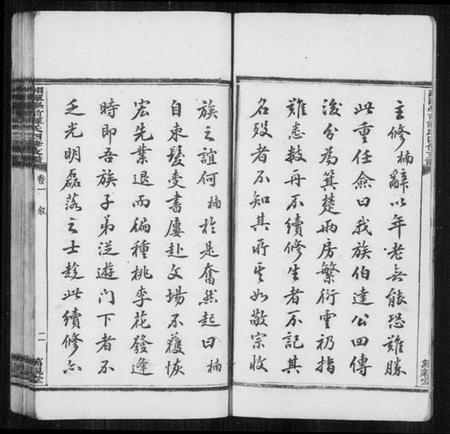 主修楠辭以年老無能恐難勝
此重任僉曰我族伯達公四傳
後分為箕楚兩房繁衍雲礽指
難悉數再不續修生者不記其
名殁者不知其所其如敬宗收
族之誼何楠於是奮然起曰楠
自束髮受書屢赴文場不獲恢
宏先業退而徧種桃李花發逢
時即吾族子弟從遊門下者不
乏光明磊落之士趁此續修亦
卷一 敘
二